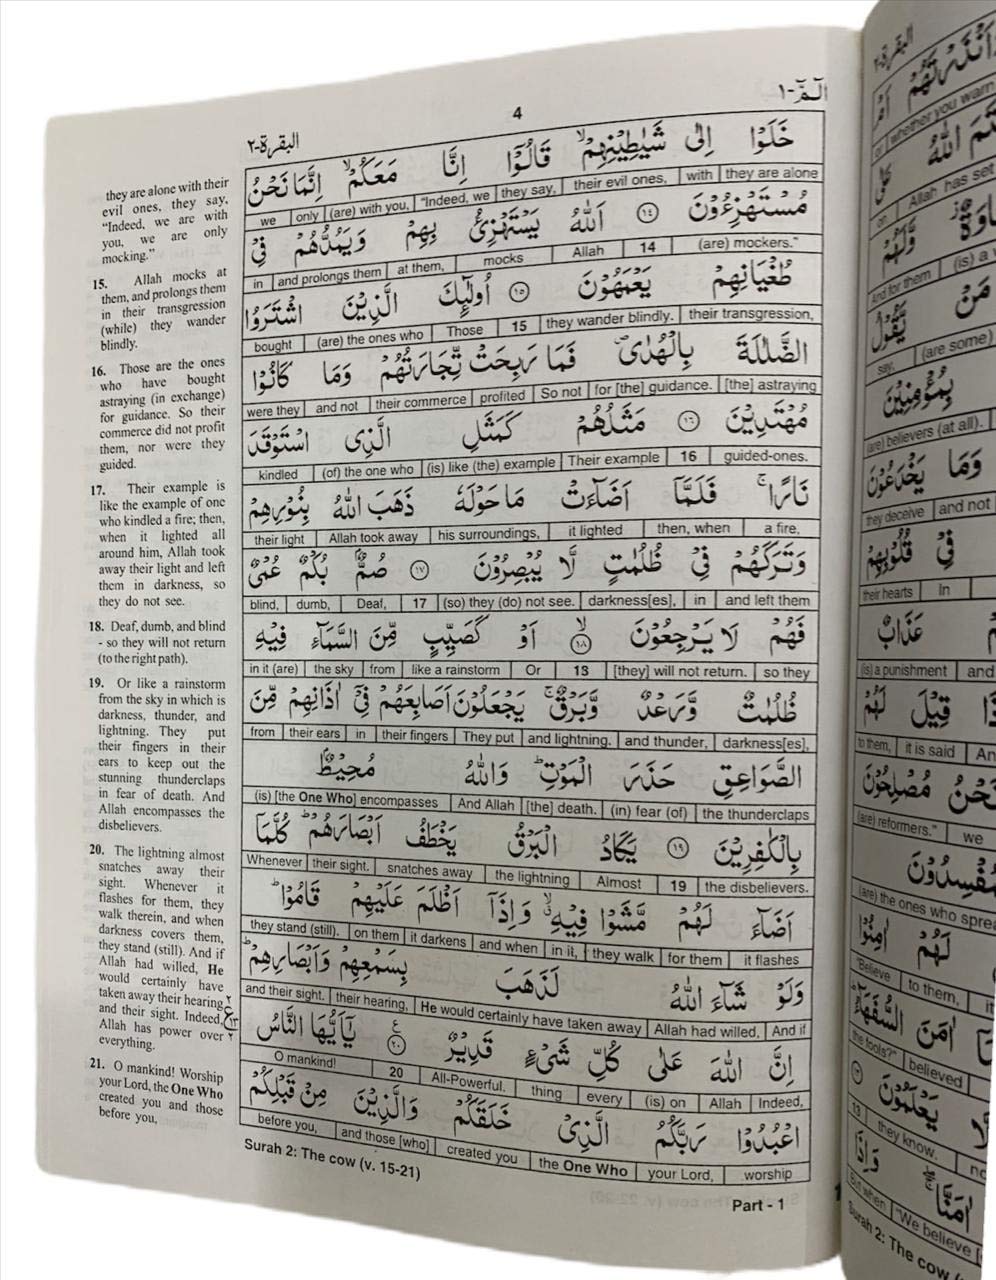 4
الٓمّٓ-١
البقرة-٢
they are alone with their
evil ones, they say,
“Indeed, we are with
you, we are only
mocking.”
15. Allah mocks at
them, and prolongs them
in their transgression
(while) they wander
blindly.
16. Those are the ones
who have bought
astraying (in exchange)
for guidance. So their
commerce did not profit
them, nor were they
guided.
17. Their example is
like the example of one
who kindled a fire; then,
when it lighted all
around him, Allah took
away their light and left
them in darkness, so
they do not see.
18. Deaf, dumb, and blind
- so they will not return
(to the right path).
19. Or like a rainstorm
from the sky in which is
darkness, thunder, and
lightning. They put
their fingers in their
ears to keep out the
stunning thunderclaps
in fear of death. And
Allah encompasses the
disbelievers.
20. The lightning almost
snatches away their
sight. Whenever it
flashes for them, they
walk therein, and when
darkness covers them,
they stand (still). And if
Allah had willed, He
would certainly have
taken away their hearing
and their sight. Indeed,
Allah has power over
everything.
21. O mankind! Worship
your Lord, the One Who
created you and those
before you,
خَلَوْا اِلٰى شَيٰطِيْنِهِمْ قَالُوْٓا اِنَّا مَعَكُمْ اِنَّمَا نَحْنُ
we | only | (are) with you, | “Indeed, we | they say, | their evil ones, | with | they are alone
مُسْتَهْزِءُوْنَ ١٤ اَللّٰهُ يَسْتَهْزِئُ بِهِمْ وَيَمُدُّهُمْ فِيْ
in | and prolongs them | at them, | mocks | Allah | 14 | (are) mockers.”
طُغْيَانِهِمْ يَعْمَهُوْنَ ١٥ اُولٰٓئِكَ الَّذِيْنَ اشْتَرَوُا
bought | (are) the ones who | Those | 15 | they wander blindly. | their transgression,
الضَّلٰلَةَ بِالْهُدٰى فَمَا رَبِحَتْ تِّجَارَتُهُمْ وَمَا كَانُوْا
were they | and not | their commerce | profited | So not | for [the] guidance. | [the] astraying
مُهْتَدِيْنَ ١٦ مَثَلُهُمْ كَمَثَلِ الَّذِى اسْتَوْقَدَ
kindled | (of) the one who | (is) like (the) example | Their example | 16 | guided-ones.
نَارًا فَلَمَّآ اَضَآءَتْ مَا حَوْلَهٗ ذَهَبَ اللّٰهُ بِنُوْرِهِمْ
their light | Allah took away | his surroundings, | it lighted | then, when | a fire,
وَتَرَكَهُمْ فِيْ ظُلُمٰتٍ لَّا يُبْصِرُوْنَ ١٧ صُمٌّ بُكْمٌ عُمْيٌ
blind, | dumb, | Deaf, | 17 | (so) they (do) not see. | darkness[es], | in | and left them
فَهُمْ لَا يَرْجِعُوْنَ ١٨ اَوْ كَصَيِّبٍ مِّنَ السَّمَآءِ فِيْهِ
in it (are) | the sky | from | like a rainstorm | Or | 18 | [they] will not return. | so they
ظُلُمٰتٌ وَّرَعْدٌ وَّبَرْقٌ يَجْعَلُوْنَ اَصَابِعَهُمْ فِيْٓ اٰذَانِهِمْ مِّنَ
from | their ears | in | their fingers | They put | and lightning. | and thunder, | darkness[es],
الصَّوَاعِقِ حَذَرَ الْمَوْتِ وَاللّٰهُ مُحِيْطٌ
(is) [the One Who] encompasses | And Allah | [the] death. | (in) fear (of) | the thunderclaps
بِالْكٰفِرِيْنَ ١٩ يَكَادُ الْبَرْقُ يَخْطَفُ اَبْصَارَهُمْ كُلَّمَآ
Whenever | their sight. | snatches away | the lightning | Almost | 19 | the disbelievers.
اَضَآءَ لَهُمْ مَّشَوْا فِيْهِ وَاِذَآ اَظْلَمَ عَلَيْهِمْ قَامُوْا
they stand (still). | on them | it darkens | and when | in it, | they walk | for them | it flashes
وَلَوْ شَآءَ اللّٰهُ لَذَهَبَ بِسَمْعِهِمْ وَاَبْصَارِهِمْ
and their sight. | their hearing, | He would certainly have taken away | Allah had willed, | And if
اِنَّ اللّٰهَ عَلٰى كُلِّ شَيْءٍ قَدِيْرٌ ٢٠ يٰٓاَيُّهَا النَّاسُ
O mankind! | 20 | All-Powerful. | thing | every | (is) on | Allah | Indeed,
اعْبُدُوْا رَبَّكُمُ الَّذِيْ خَلَقَكُمْ وَالَّذِيْنَ مِنْ قَبْلِكُمْ
before you, | and those [who] | created you | the One Who | your Lord, | worship
Surah 2: The cow (v. 15-21)
Part - 1
البقرة-٢
ءَاَنْذَرْتَهُمْ اَمْ
or | whether you warn
Allah has set
And for them | (is) a
مَنْ يَّقُوْلُ
say, | (are some)
بِمُؤْمِنِيْنَ
(are) believers (at all).
وَمَا يَخْدَعُوْنَ
they deceive | and not
فِيْ قُلُوْبِهِمْ
their hearts | In
عَذَابٌ
(is) a punishment | and
قِيْلَ لَهُمْ
to them, | it is said
نَحْنُ مُصْلِحُوْنَ
(are) reformers.” | we
(are) the ones who
لَهُمْ اٰمِنُوْا
“Believe | to them,
اٰمَنَ السُّفَهَآءُ
the fools?” | believed
يَعْلَمُوْنَ
13 | they know.
وَاِذَا اٰمَنَّا
But when | “We believe
Surah 2: The cow